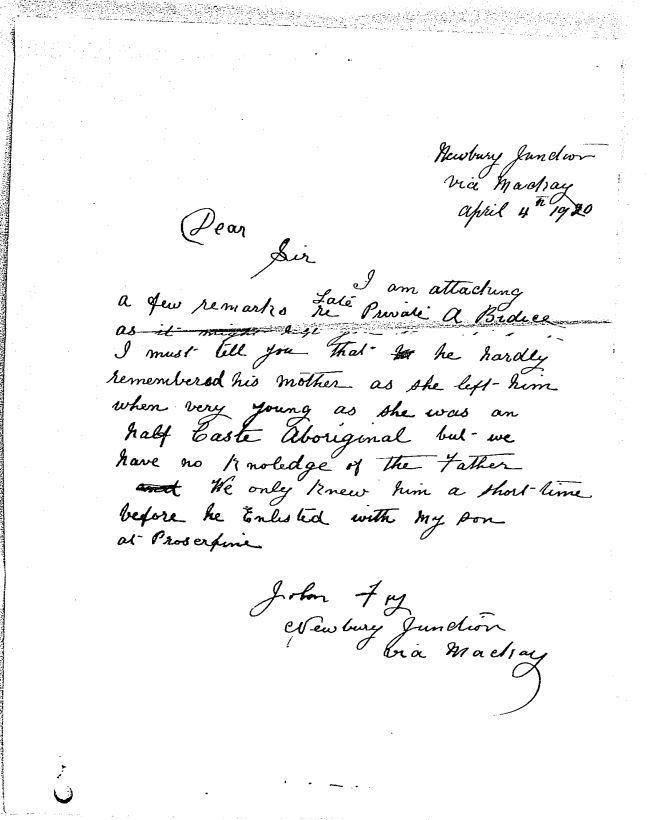 Newbury Junction
via Mackay
April 4th 1920
Dear
Sir
I am attaching
a few remarks re Late Private A Bidice
as
I must tell you that he hardly
remembered his mother as she left him
when very young as she was an
half Caste Aboriginal but we
have no Knoledge of the Father
We only Knew him a short time
before he Enlisted with my son
at Proserpine
John Foy
Newbury Junction
via Mackay